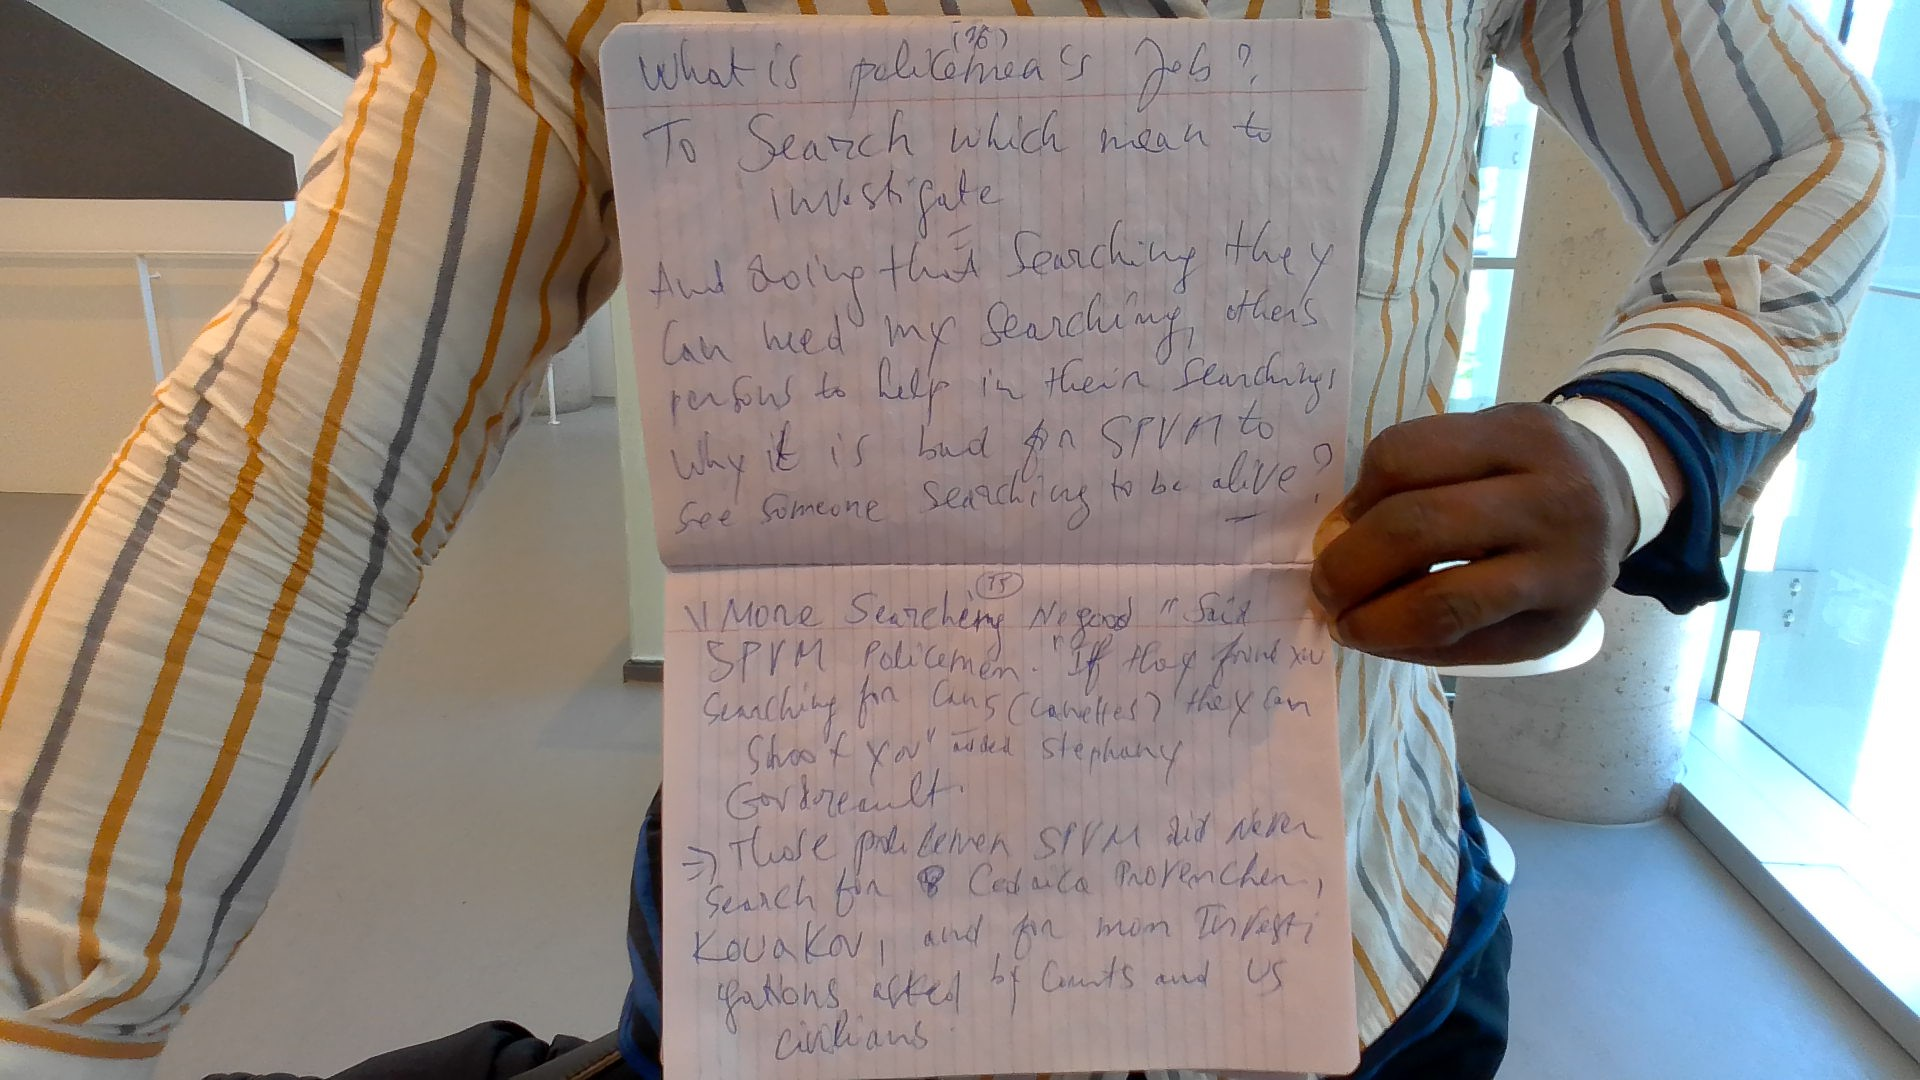 (76)
What is policemen's Job?
To Search which mean to
investigate
And doing that Searching they
Can need my Searching, others
persons to help in their Searchings
Why it is bad for SPVM to
See Someone Searching to be alive?
(75)
\\ More Searching No good " Said
SPVM Policemen. "If they found you
Searching for Cans (Canettes) they can
Shoot you" added Stephany
=> Those policemen SPVM did Never
Search for Cedrica Provencher,
Kouakou, and for mom Investi
gations asked by Courts and US
civilians.